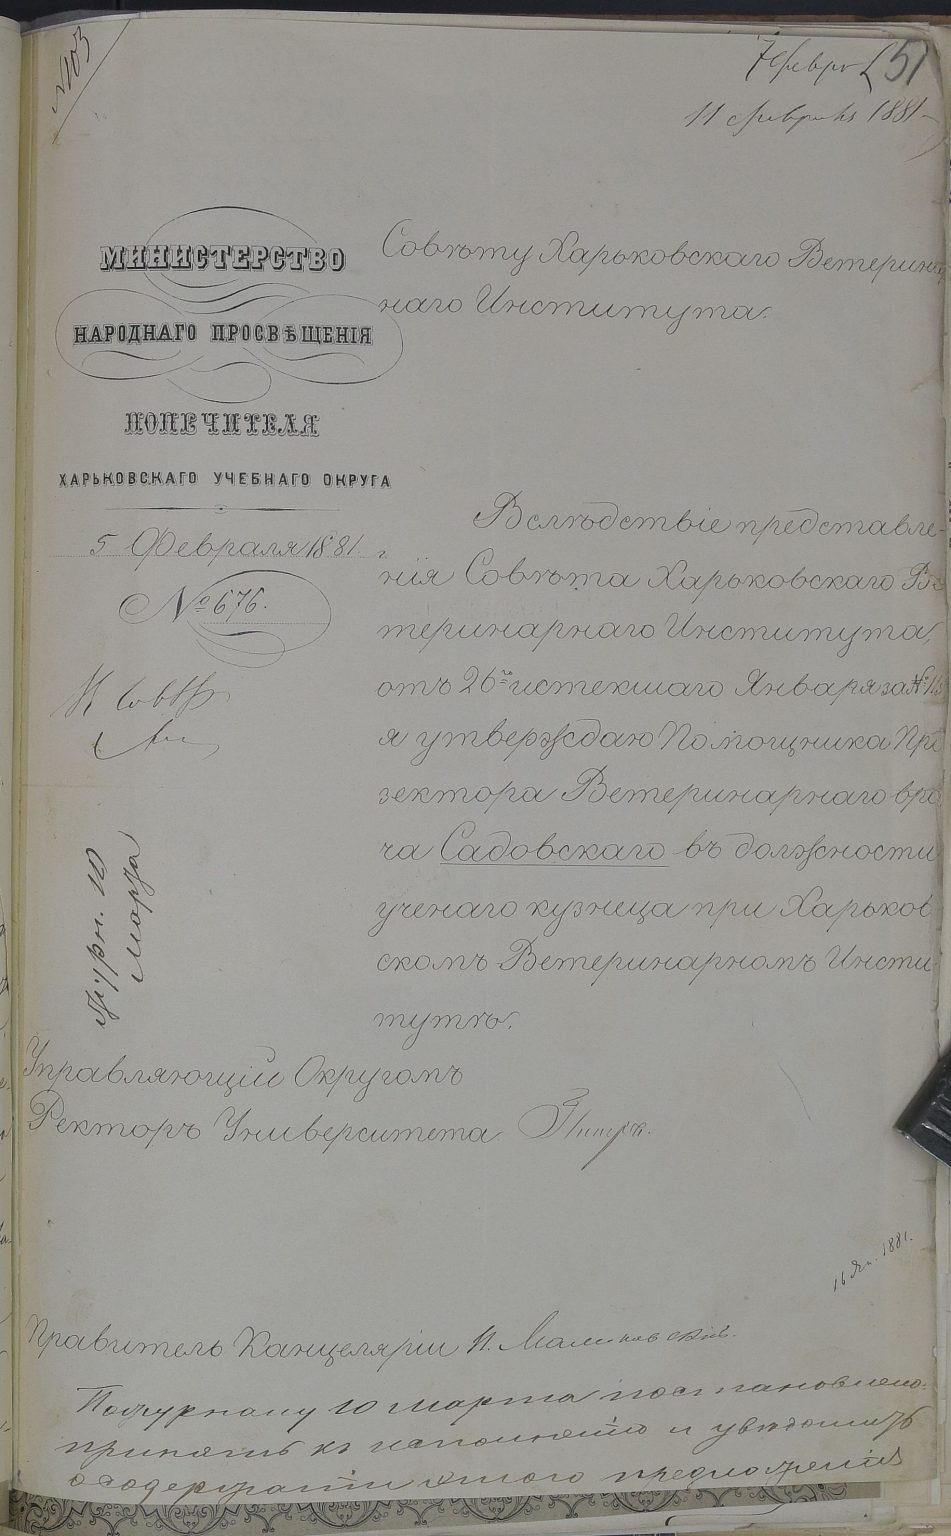 № 103
7 Февр
51
11 Февраля 1881
МИНИСТЕРСТВО
НАРОДНАГО ПРОСВѢЩЕНІЯ
ПОПЕЧИТЕЛЯ
ХАРЬКОВСКАГО УЧЕБНАГО ОКРУГА
5 Февраля 1881 г.
№ 676.
Журн. 10
Марта
Совѣту Харьковскаго Ветеринар
наго Института.
Вслѣдствіе представле-
нія Совѣта Харьковскаго Ве
теринарнаго Института,
отъ 26го истекшаго Января за №
я утверждаю Помощника Про
зектора Ветеринарнаго вра
ча Садовскаго въ должности
ученаго кузнеца при Харьков
скомъ Ветеринарномъ Инсти
тутѣ.
Управляющій Округомъ
Ректоръ Университета
16 Ян. 1881.
Правитель Канцеляріи
По журналу 10 Марта постановлено:
принять къ исполненію и увѣдомить
о содержаніи этого предложенія